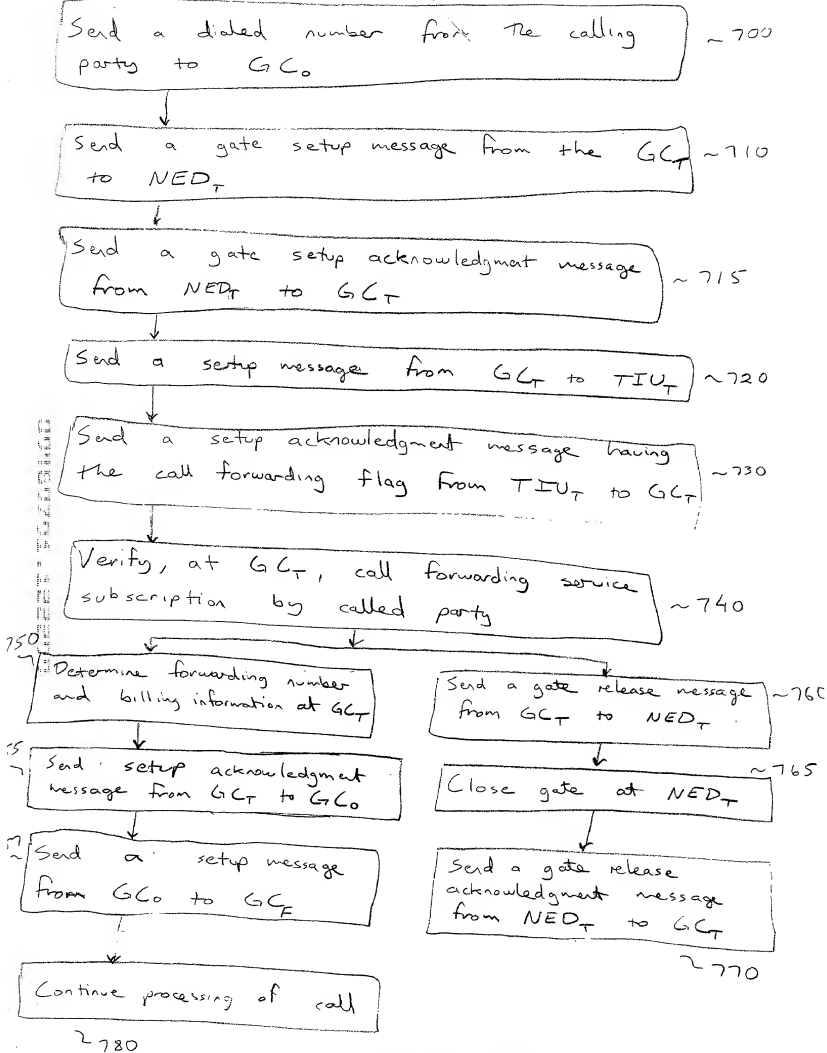 Send a dialed number from the calling ~700
party to GCO
Send a gate setup message from the GCT ~710
to NEDT
Send a gate setup acknowledgment message
from NEDT to GCT ~715
Send a setup message from GCT to TIUT ~720
Send a setup acknowledgment message having
the call forwarding flag from TIUT to GCT ~730
Verify, at GCT, call forwarding service
subscription by called party ~740
750
Determine forwarding number
and billing information at GCT
Send setup acknowledgment
message from GCT to GCO
Send a setup message
from GCO to GCF
Continue processing of call
~780
Send a gate release message ~760
from GCT to NEDT
~765
Close gate at NEDT
Send a gate release
acknowledgment message
from NEDT to GCT
~770